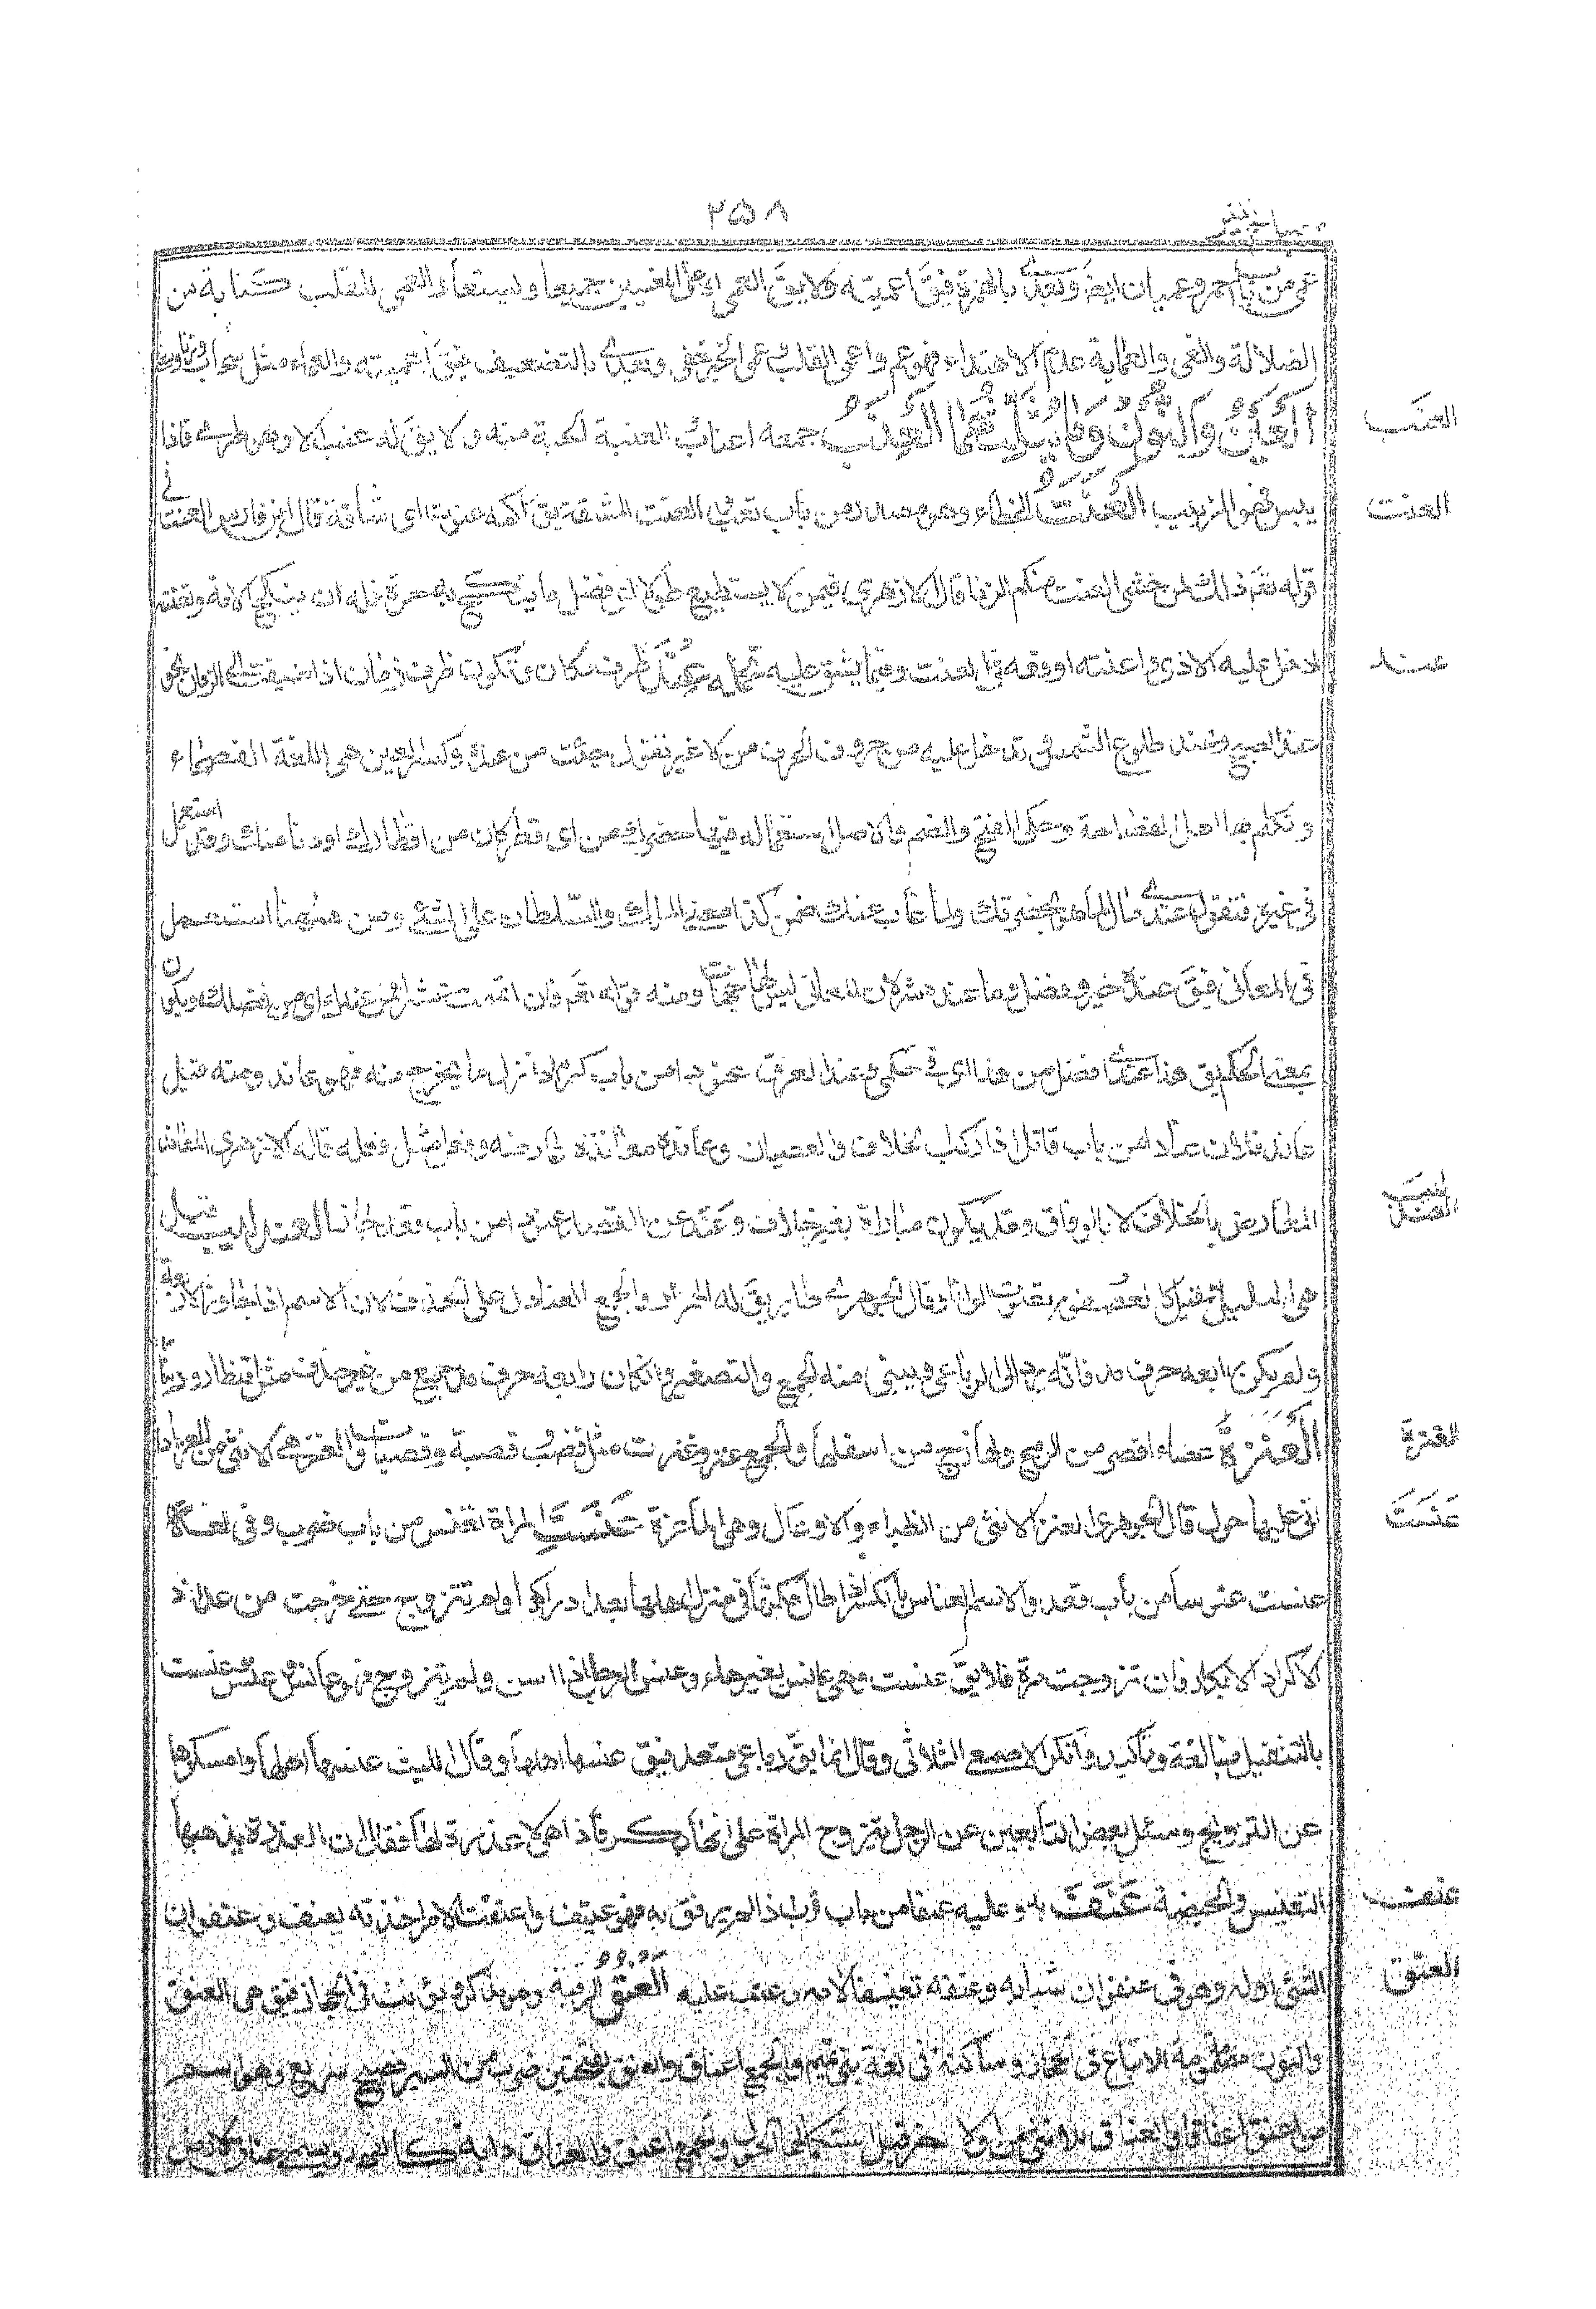 ٢٥٨
عمى من باب احمر وعميان ايضا ويتعدى بالهمزة فيق اعميته ولا يق العمى الا على المعنيين جميعا ويستعار العمى للقلب كناية من
الضلالة والغى والعماية عدم الاهتداء فهو عم واعمى القلب وعمى الخبر خفى ويتعدى بالتضعيف فيق عميته والعماء مثل سحاب
العين والنون وما يثلثهما العنب جمعه اعناب العنبة الحبة منه ولا يق له عنب الا وهو طرى فاذا
العنب
يبس فهو الزبيب العنت الخطاء وهو مصدر من باب تعب والعنت المشقة يق اكمة عنوت اى شاقة قال ابن فارس العنت فى
العنت
قوله تع ذلك لمن خشى العنت منكم الزنا قال الازهرى فيمن لا يستطيع طولا اى فضل ما ينكح به حرة فله ان ينكح الامة وتعنته
ادخل عليه الاذى واعنته اوقعه فى العنت وفيما يشق عليه تحمله عند ظرف مكان وتكون ظرف زمان اذا اضيفت الى الزمان نحو
عند
عند الصبح وعند طلوع الشمس وتدخل عليه من حروف الجر من لا غير تقول جئت من عنده وكسر العين هى اللغة الفصحاء
وتكلم بها اهل الفصاحة وحكى الفتح والضم والاصل استعماله فيما حضرك من اى قطر كان من اقطارك او دنا منك وقد استعمل
فى غيره فتقول عندى مال لما هو بحضرتك ولما غاب عنك ضمن كذا معنى الملك والسلطان على الشئ ومن ههنا استعمل
فى المعانى فيق عنده خير وفضل وما عنده شر لان المعانى ليس لها جهات ومنه قوله تع فان اتممت عشرا فمن عندك اى من فضلك ويكون
بمعنى الحكم يق هذا عندى افضل من هذا اى فى حكمى وعند العرق عنودا من باب كرم اذا نزل ما يخرج منه فهو عاند ومنه قيل
عاند فلان عنادا من باب قاتل اذا ركب الخلاف والعصيان وعانده معاندة عارضه وفعل مثل فعله قال الازهرى المعاند
المعارض بالخلاف لا بالوفاق وقد يكون مباراة بغير خلاف وعند عن القصد عنودا من باب قعد جار العندليب قيل
هو البلبل وقيل كالعصفور يصوت الوانا وقال الجوهرى طاير يق له الهزار والجمع العنادل على الحذف لان الاسم اذا جاوز الاربعة
ولم يكن رابعه حرف مد فانه يرد الى الرباعى ويبنى منه الجمع والتصغير وان كان رابعه حرف مد جمع من غير حذف مثل قنطار ودينار
العنزة عصاء اقصر من الرمح ولها زج من اسفلها والجمع عنز وعنزت مثل قصب قصبة وقصبات والعنز هى الانثى من المعز اذا
العنزة
اتى عليها حول قال الجوهرى العنز الانثى من الظباء والاوعال وهى الماعزة عنست المراة تعنس من باب ضرب وفى لغة
عنست
عنست عنوسا من باب قعد والاسم العناس بالكسر اذا طال مكثها فى منزل اهلها بعد ادراكها ولم تتزوج حتى خرجت من عداد
الابكار فان تزوجت مرة فلا يق عنست وهى عانس بغير هاء وعنس الرجل اذا اسن ولم يتزوج فهو عانس
بالتثقيل مبالغة وتأكيد وانكر الاصمعى الثلاثى وقال انما يق رباعى متعد فيق عنسها اهلها وقال الليث عنسها اهلها وامسكوها
عن التزويج وسئل بعض التابعين عن الرجل يتزوج المراة على انها بكر فاذا هى لا عذرة لها فقال ان العذرة يذهبها
التعنيس والحيضة عنف به وعليه عنفا من باب قرب اذا لم يرفق به فهو عنيف واعتنفت الامر اخذته بعنف وعنفوان
الشئ اوله وهو فى عنفوان شبابه وعنفه تعنيفا لامه وعتب عليه العنق الرقبة وهو مذكر ويؤنث فى الحجاز فيق هى العنق
العنق
والنون مضمومة للاتباع فى الحجاز وساكنة فى لغة بنى تميم والجمع اعناق والعنق بفتحتين ضرب من السير فسيح سريع وهو اسم
من اعنق اعناقا والعناق الانثى من اولاد المعز قبل استكمالها الحول والجمع اعنق